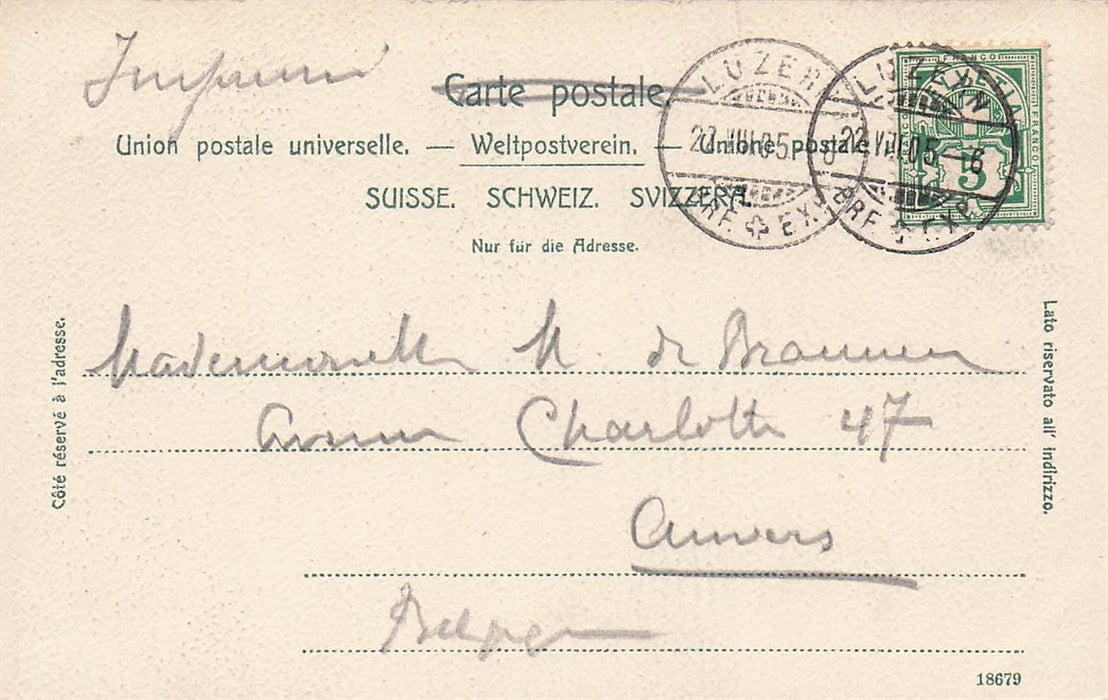 Imprimé
Carte postale.
Union postale universelle. — Weltpostverein. — Unione postale
SUISSE. SCHWEIZ. SVIZZERA.
Nur für die Adresse.
LUZERN
22.VIII.05.
BRF. EXP.
LUZERN
22.VIII.05.–6
BRF. EXP.
FRANCO
5
Côté réservé à l'adresse.
Mademoiselle M. de
Avenue Charlotte 47
Anvers
Belgique
Lato riservato all' indirizzo.
18679